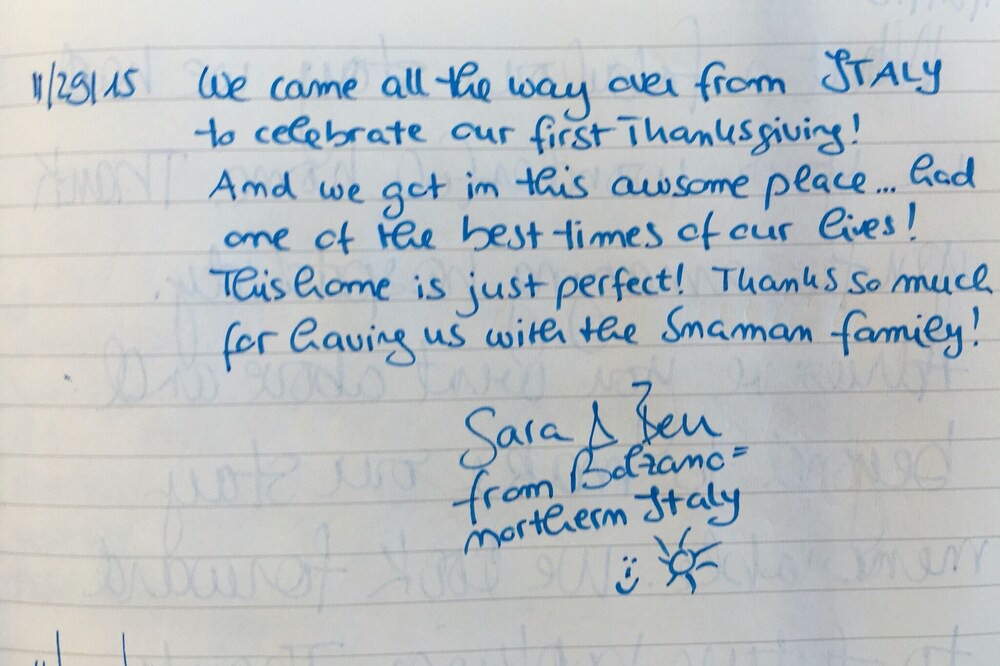 11/29/15 We came all the way over from ITALY
to celebrate our first Thanksgiving!
And we got in this awsome place... had
one of the best times of our lives!
This home is just perfect! Thanks so much
for having us with the Smaman family!
Sara & Ben
from Bolzano =
northern Italy